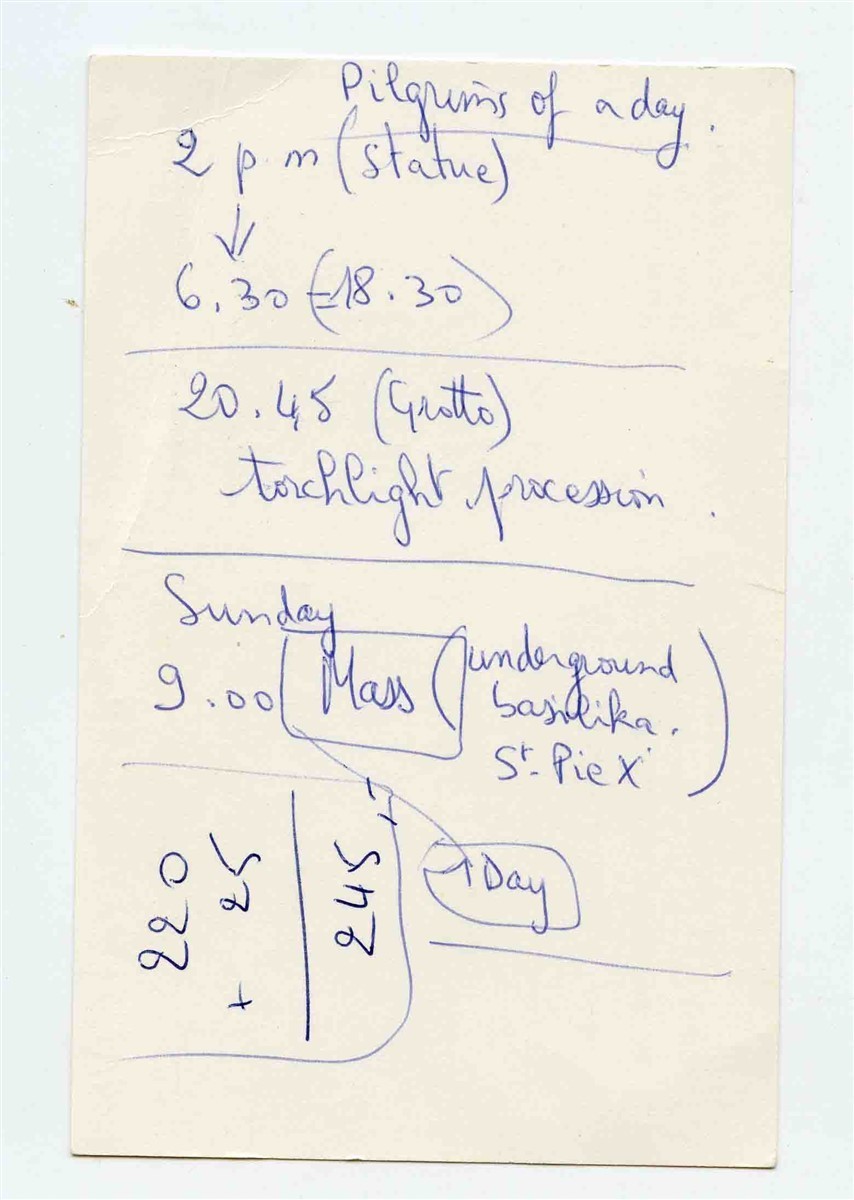 Pilgrims of a day.
2 p.m (statue)
↓
6.30 (=18.30)
20.45 (Grotto)
torchlight procession.
Sunday
9.00 Mass (underground
basilika.
St. Pie X)
1 Day
220
+ 25
245